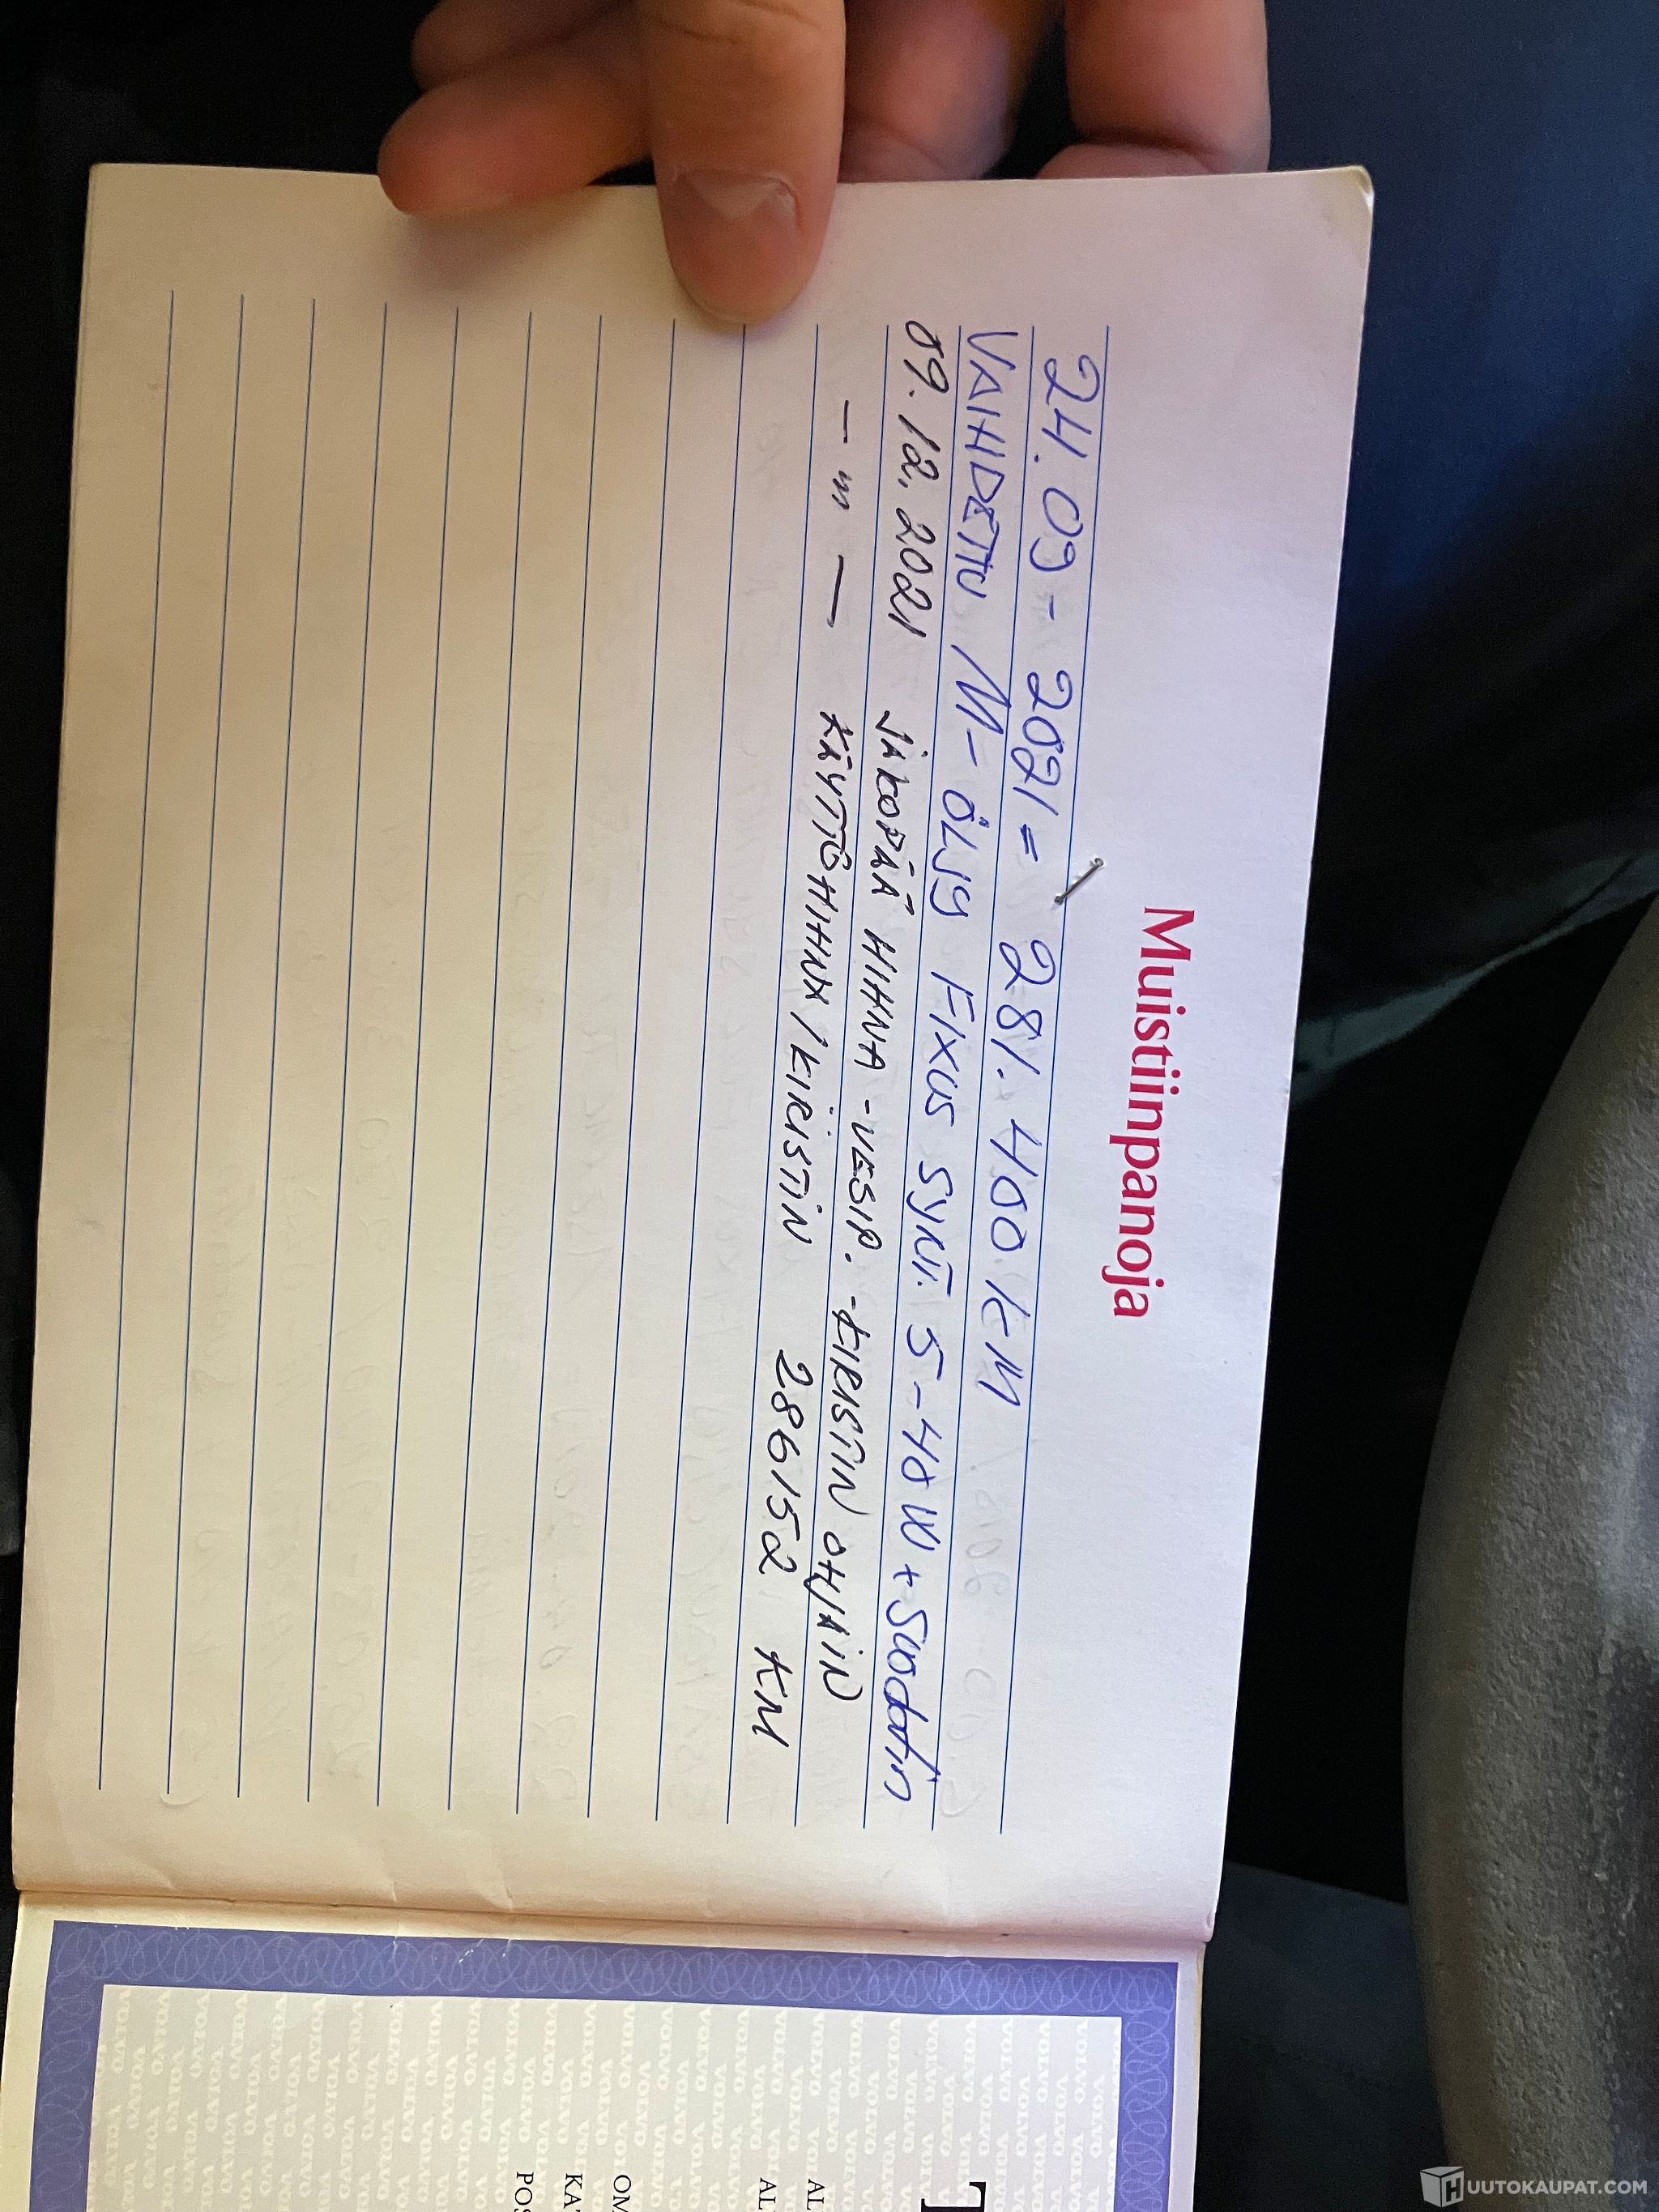 Muistiinpanoja
24.09-2021 = 281.400 KM
VAIHDETTU M-ÖLJY FIXUS SYNT. 5-40W + Suodatin
09.12.2021 JAKOPÄÄ HIHNA -VESIP. -KIRISTIN OHJAIN
- " - KÄYTTÖHIHNA / KIRISTIN 286152 KM
VOLVO
AL
AL
OM
KA
POS
HUUTOKAUPAT.COM